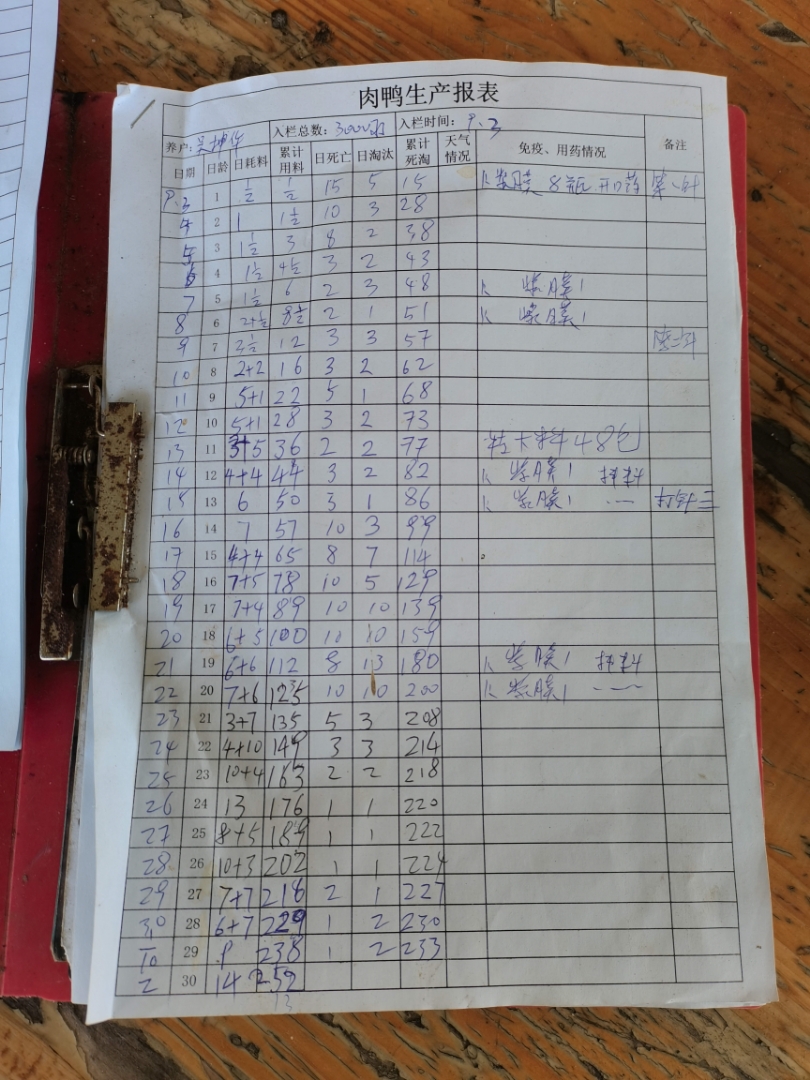 肉鸭生产报表
养户: 入栏总数: 3000 入栏时间: 9.3
日期 日龄 日耗料 累计用料 日死亡 日淘汰 累计死淘 天气情况 免疫、用药情况 备注
9.3 1 1/2 1/2 15 5 15 8瓶 开口药 第一针
4 2 1 1 1/2 10 3 28
5 3 1 1/2 3 8 2 38
6 4 1 1/2 4 1/2 3 2 43
7 5 1 1/2 6 2 3 48
8 6 2+1/2 8 1/2 2 1 51
9 7 3 1/2 12 3 3 57
10 8 2+2 16 3 2 62
11 9 5+1 22 5 1 68
12 10 5+1 28 3 2 73
13 11 3+5 36 2 2 77 拉大料48包
14 12 4+4 44 3 2 82 拌料
15 13 6 50 3 1 86 打针三
16 14 7 57 10 3 99
17 15 4+4 65 8 7 114
18 16 7+5 78 10 5 129
19 17 7+4 89 10 10 139
20 18 6+5 100 10 10 159
21 19 6+6 112 8 13 180 拌料
22 20 7+6 125 10 10 200
23 21 3+7 135 5 3 208
24 22 4+10 149 3 3 214
25 23 10+4 163 2 2 218
26 24 13 176 1 1 220
27 25 8+5 189 1 1 222
28 26 10+3 202 1 1 224
29 27 7+7 216 2 1 227
30 28 6+7 229 1 2 230
10 29 9 238 1 2 233
2 30 14 252
13